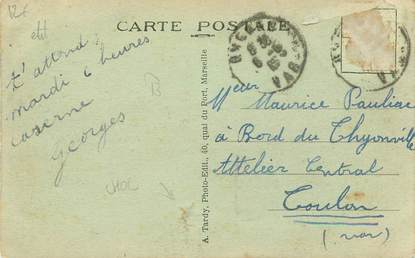 12€
CARTE POSTALE
T'attend
mardi 6 heures
caserne
Georges
CHOC
B
A. Tardy, Photo-Edit., 40, quai du Port, Marseille
VAR
Meur Maurice Pauliac
à Bord du Thyonville
Attelier Central
Toulon
(Var)